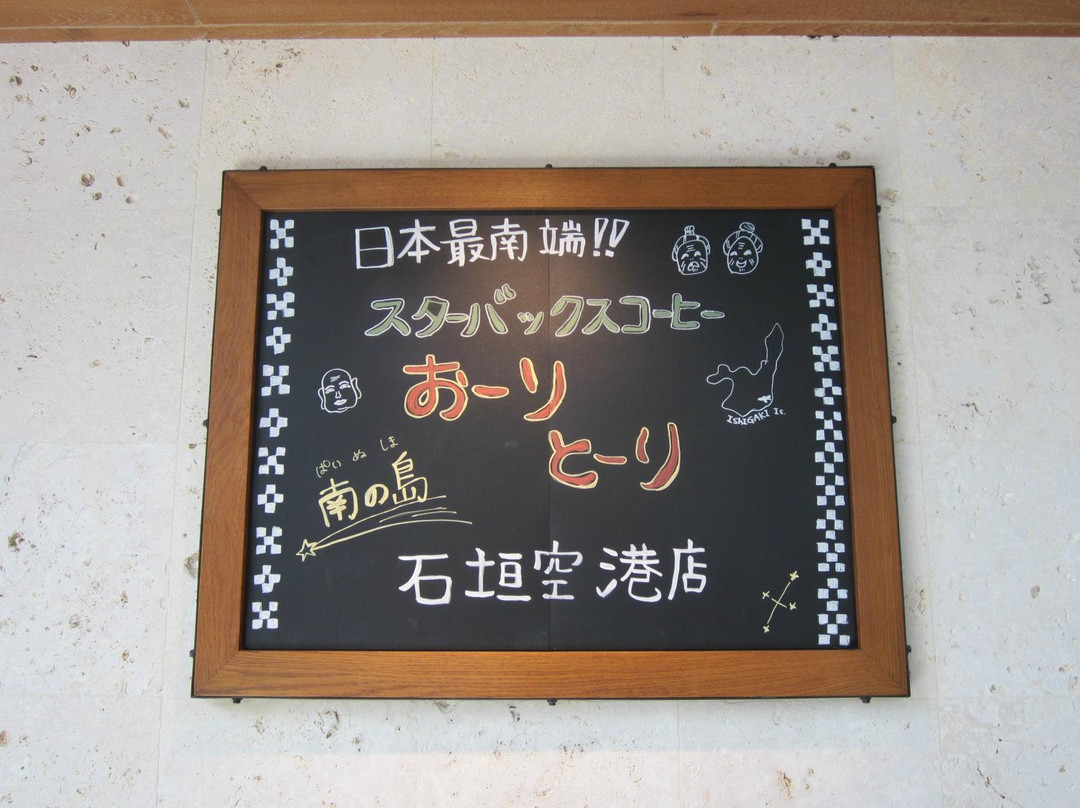 日本最南端!!
スターバックスコーヒー
おーり
とーり
ISHIGAKI Is.
ぱいぬ しま
南の島
石垣空港店